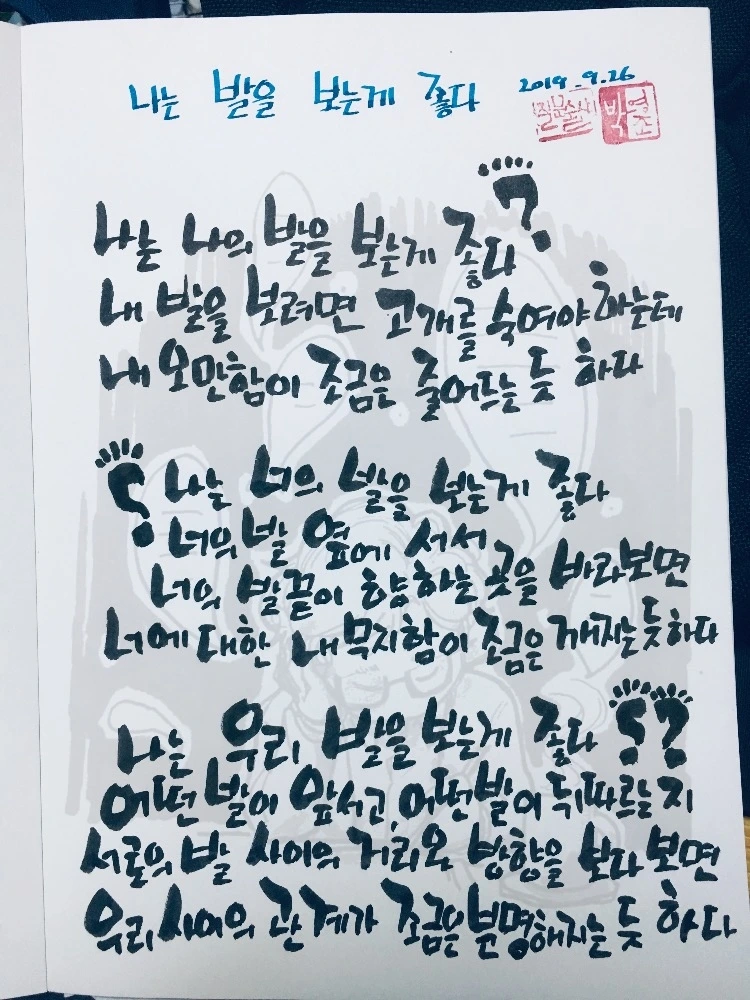 나는 발을 보는게 좋다 2019.9.26
질문술사 박영조
나는 나의 발을 보는게 좋다
내 발을 보려면 고개를 숙여야 하는데
내 오만함이 조금은 줄어드는 듯 하다
나는 너의 발을 보는게 좋다
너의 발 옆에 서서
너의 발끝이 향하는 곳을 바라보면
너에 대한 내 무지함이 조금은 깨지는 듯 하다
나는 우리 발을 보는게 좋다
어떤 발이 앞서고, 어떤 발이 뒤따르는지
서로의 발 사이의 거리와 방향을 보다 보면
우리 사이의 관계가 조금은 분명해지는 듯 하다